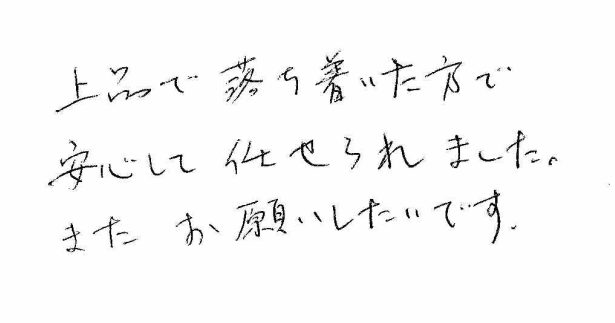 上品で落ち着いた方で
安心して任せられました。
またお願いしたいです.